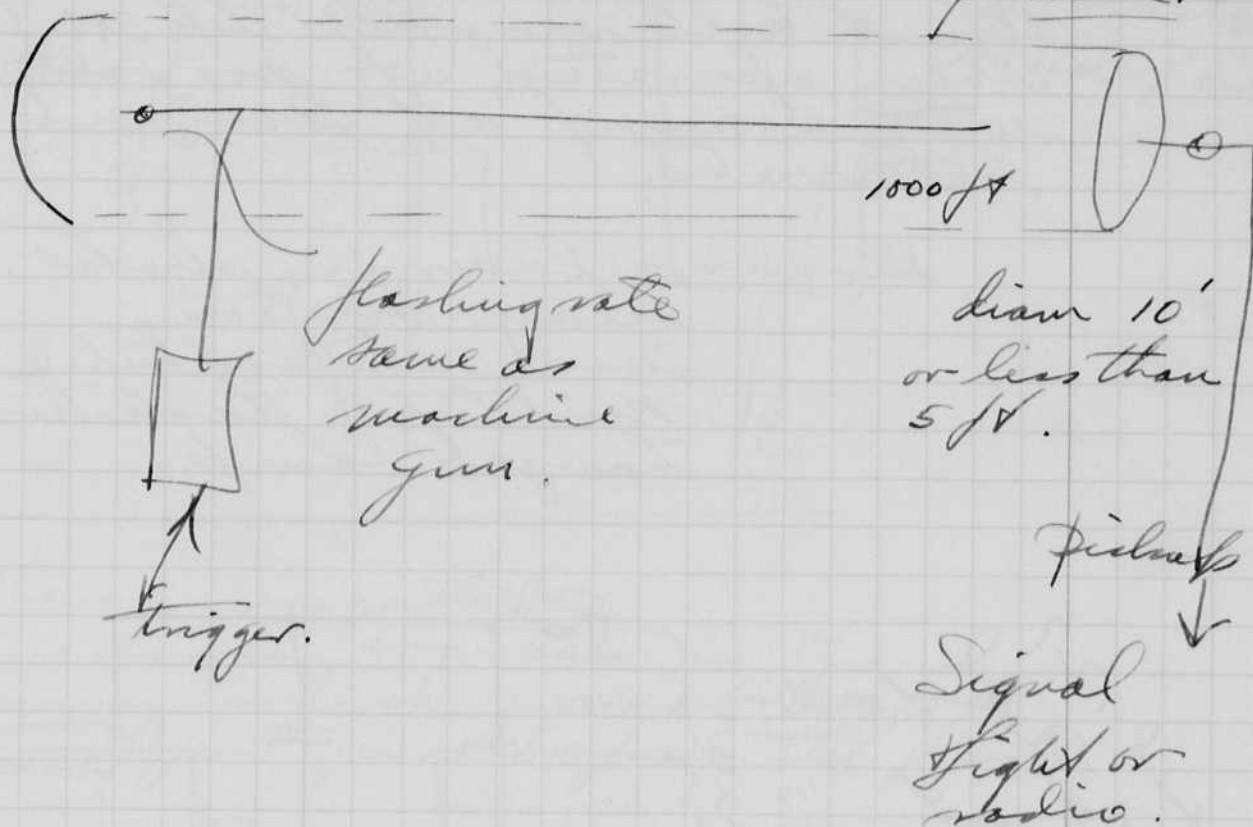 1000 ft
flashing rate
same as
machine
gun.
diam 10'
or less than
5 ft.
pickup
trigger.
Signal
light or
radio.